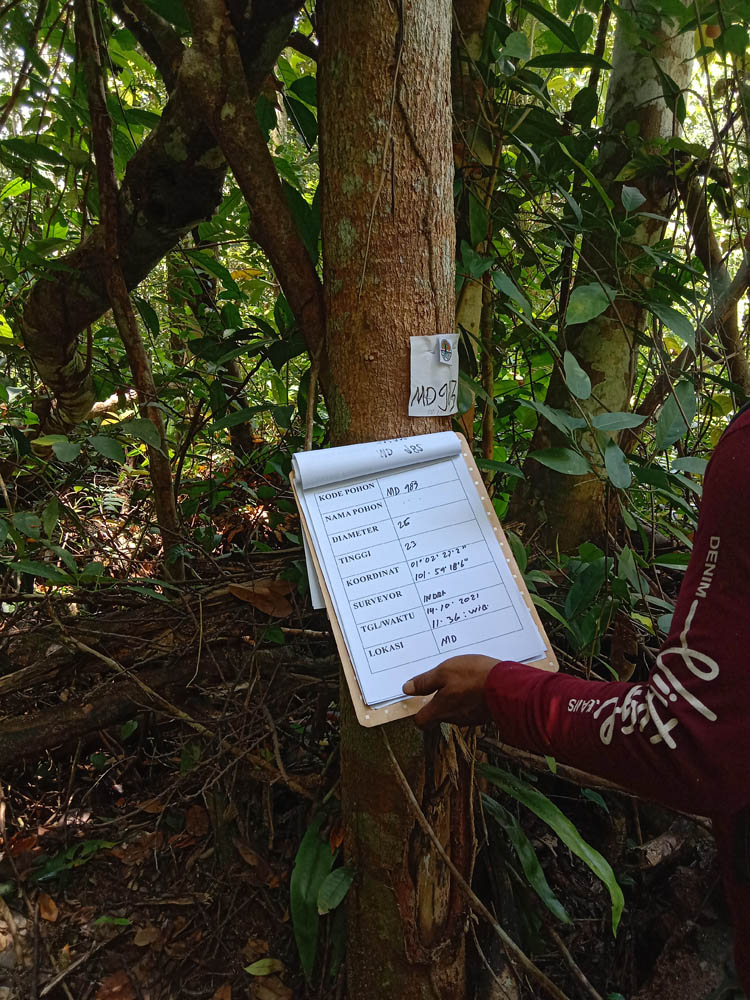 MD 913
MD 985
KODE POHON MD 983
NAMA POHON
DIAMETER 26
TINGGI 23
KOORDINAT 01° 02' 22'2"
101° 59' 18'6"
SURVEYOR INDRA
TGL/WAKTU 14.10.2021
11.36: WIB
LOKASI MD
DENIM